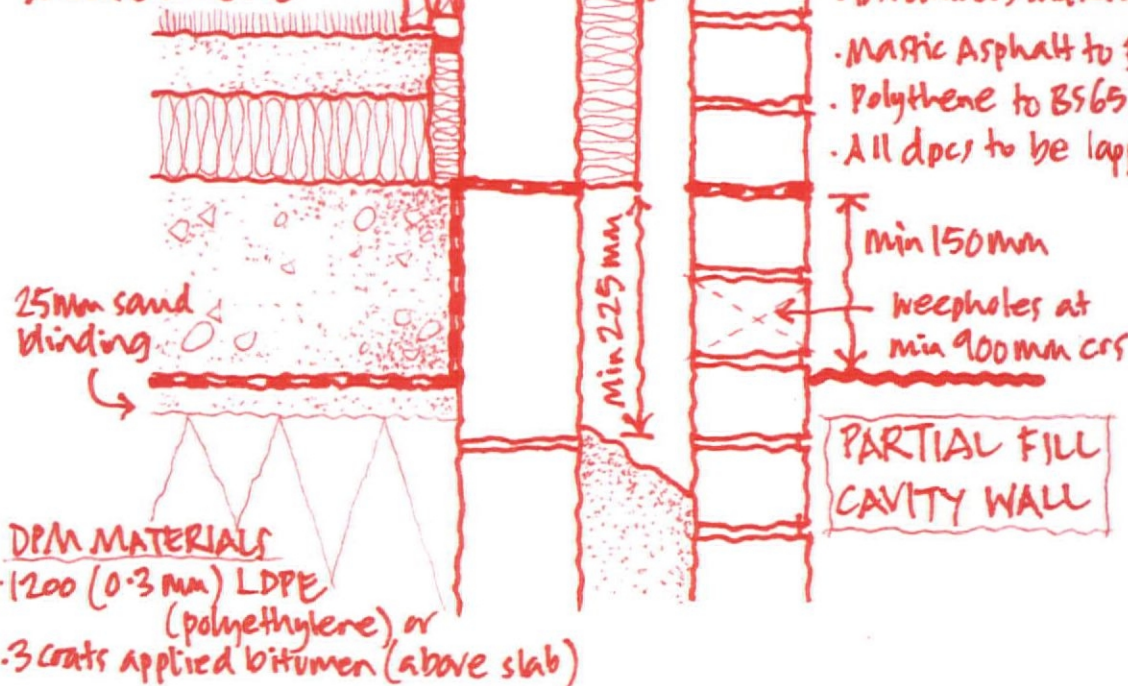 · Mastic Asphalt to
· Polythene to BS65
· All dpcs to be lap
min 150mm
weepholes at
min 900mm crs
Min 225mm
25mm sand
blinding
PARTIAL FILL
CAVITY WALL
DPM MATERIALS
·1200 (0.3mm) LDPE
(polyethylene) or
·3 coats applied bitumen (above slab)